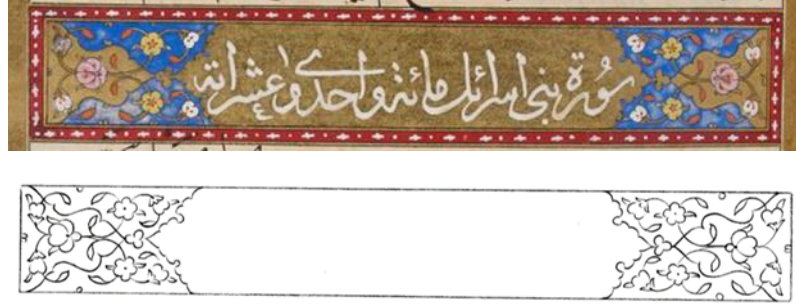 سُورة بنى اسرائل مائة واحدى وعشر اية